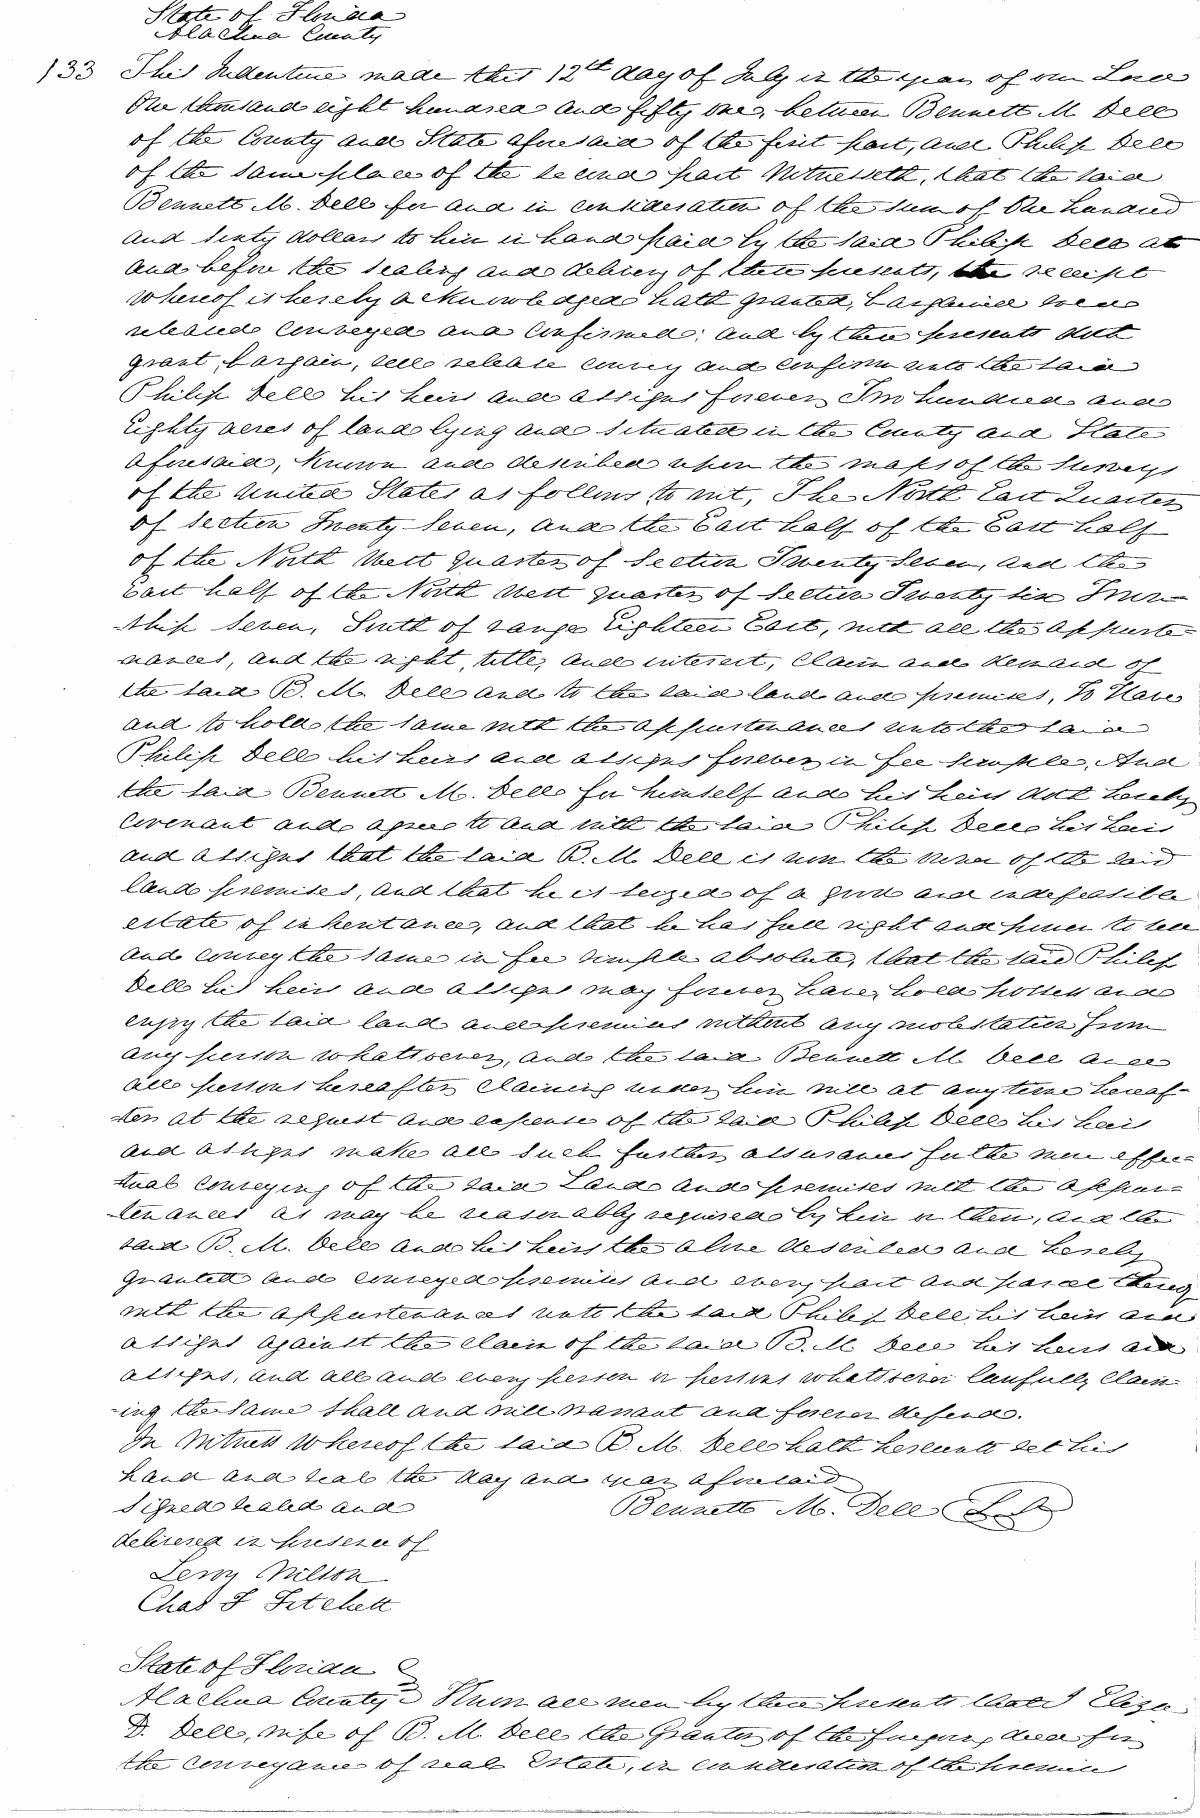 State of Florida
Alachua County
133 This Indenture made this 12th day of July in the year of our Lord
One thousand eight hundred and fifty one, between Bennett M. Dell
of the County and State aforesaid of the first part, and Philip Dell
of the same place of the second part Witnesseth, that the said
Bennett M. Dell for and in consideration of the sum of One hundred
and sixty dollars to him in hand paid by the said Philip Dell at
and before the sealing and delivery of these presents, the receipt
whereof is hereby acknowledged hath granted, bargained sold
released conveyed and confirmed; and by these presents doth
grant, bargain, sell release convey and confirm unto the said
Philip Dell his heirs and assigns forever Two hundred and
Eighty acres of land lying and situated in the County and State
aforesaid, known and described upon the maps of the Surveys
of the United States as follows to wit, The North East Quarter
of Section Twenty Seven, and the East half of the East half
of the North West quarter of Section Twenty Seven, and the
East half of the North West quarter of Section Twenty six Town-
-ship Seven, South of range Eighteen East, with all the appurte-
nances, and the right, title, and interest, claim and demand of
the said B. M. Dell and to the said land and premises, To Have
and to hold the same with the appurtenances unto the said
Philip Dell his heirs and assigns forever in fee simple. And
the said Bennett M. Dell for himself and his heirs doth hereby
covenant and agree to and with the said Philip Dell his heirs
and assigns that the said B. M. Dell is now the owner of the said
land premises, and that he is seized of a good and indefeasible
estate of inheritance, and that he has full right and power to sell
and convey the same in fee simple absolute, that the said Philip
Dell his heirs and assigns may forever have, hold possess and
enjoy the said land and premises without any molestation from
any person whatsoever, and the said Bennett M. Dell and
all persons hereafter claiming under him will at any time hereaf-
-ter at the request and expense of the said Philip Dell his heirs
and assigns make all such further assurances for the more effec-
tual conveying of the said Land and premises with the appur-
-tenances as may be reasonably required by him or them, and the
said B. M. Dell and his heirs the above described and hereby
granted and conveyed premises and every part and parcel thereof
with the appurtenances unto the said Philip Dell his heirs and
assigns against the claim of the said B. M. Dell his heirs and
assigns, and all and every person or persons whatsoever lawfully claim-
-ing the same shall and will warrant and forever defend.
In Witness Whereof the said B. M. Dell hath hereunto set his
hand and seal the day and year aforesaid
Signed sealed and Bennett M. Dell
delivered in presence of
Leroy Wilson
Chas F Fitchett
State of Florida
Alachua County Know all men by these presents that I Eliza
D. Dell, wife of B. M. Dell the Grantor of the foregoing deed for
the conveyance of real Estate, in consideration of the premises